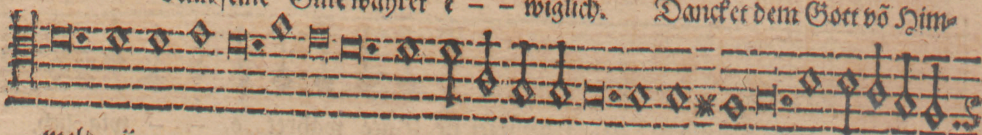 seine Güte währet e - - wiglich. Dancket dem Gott võ Him⸗